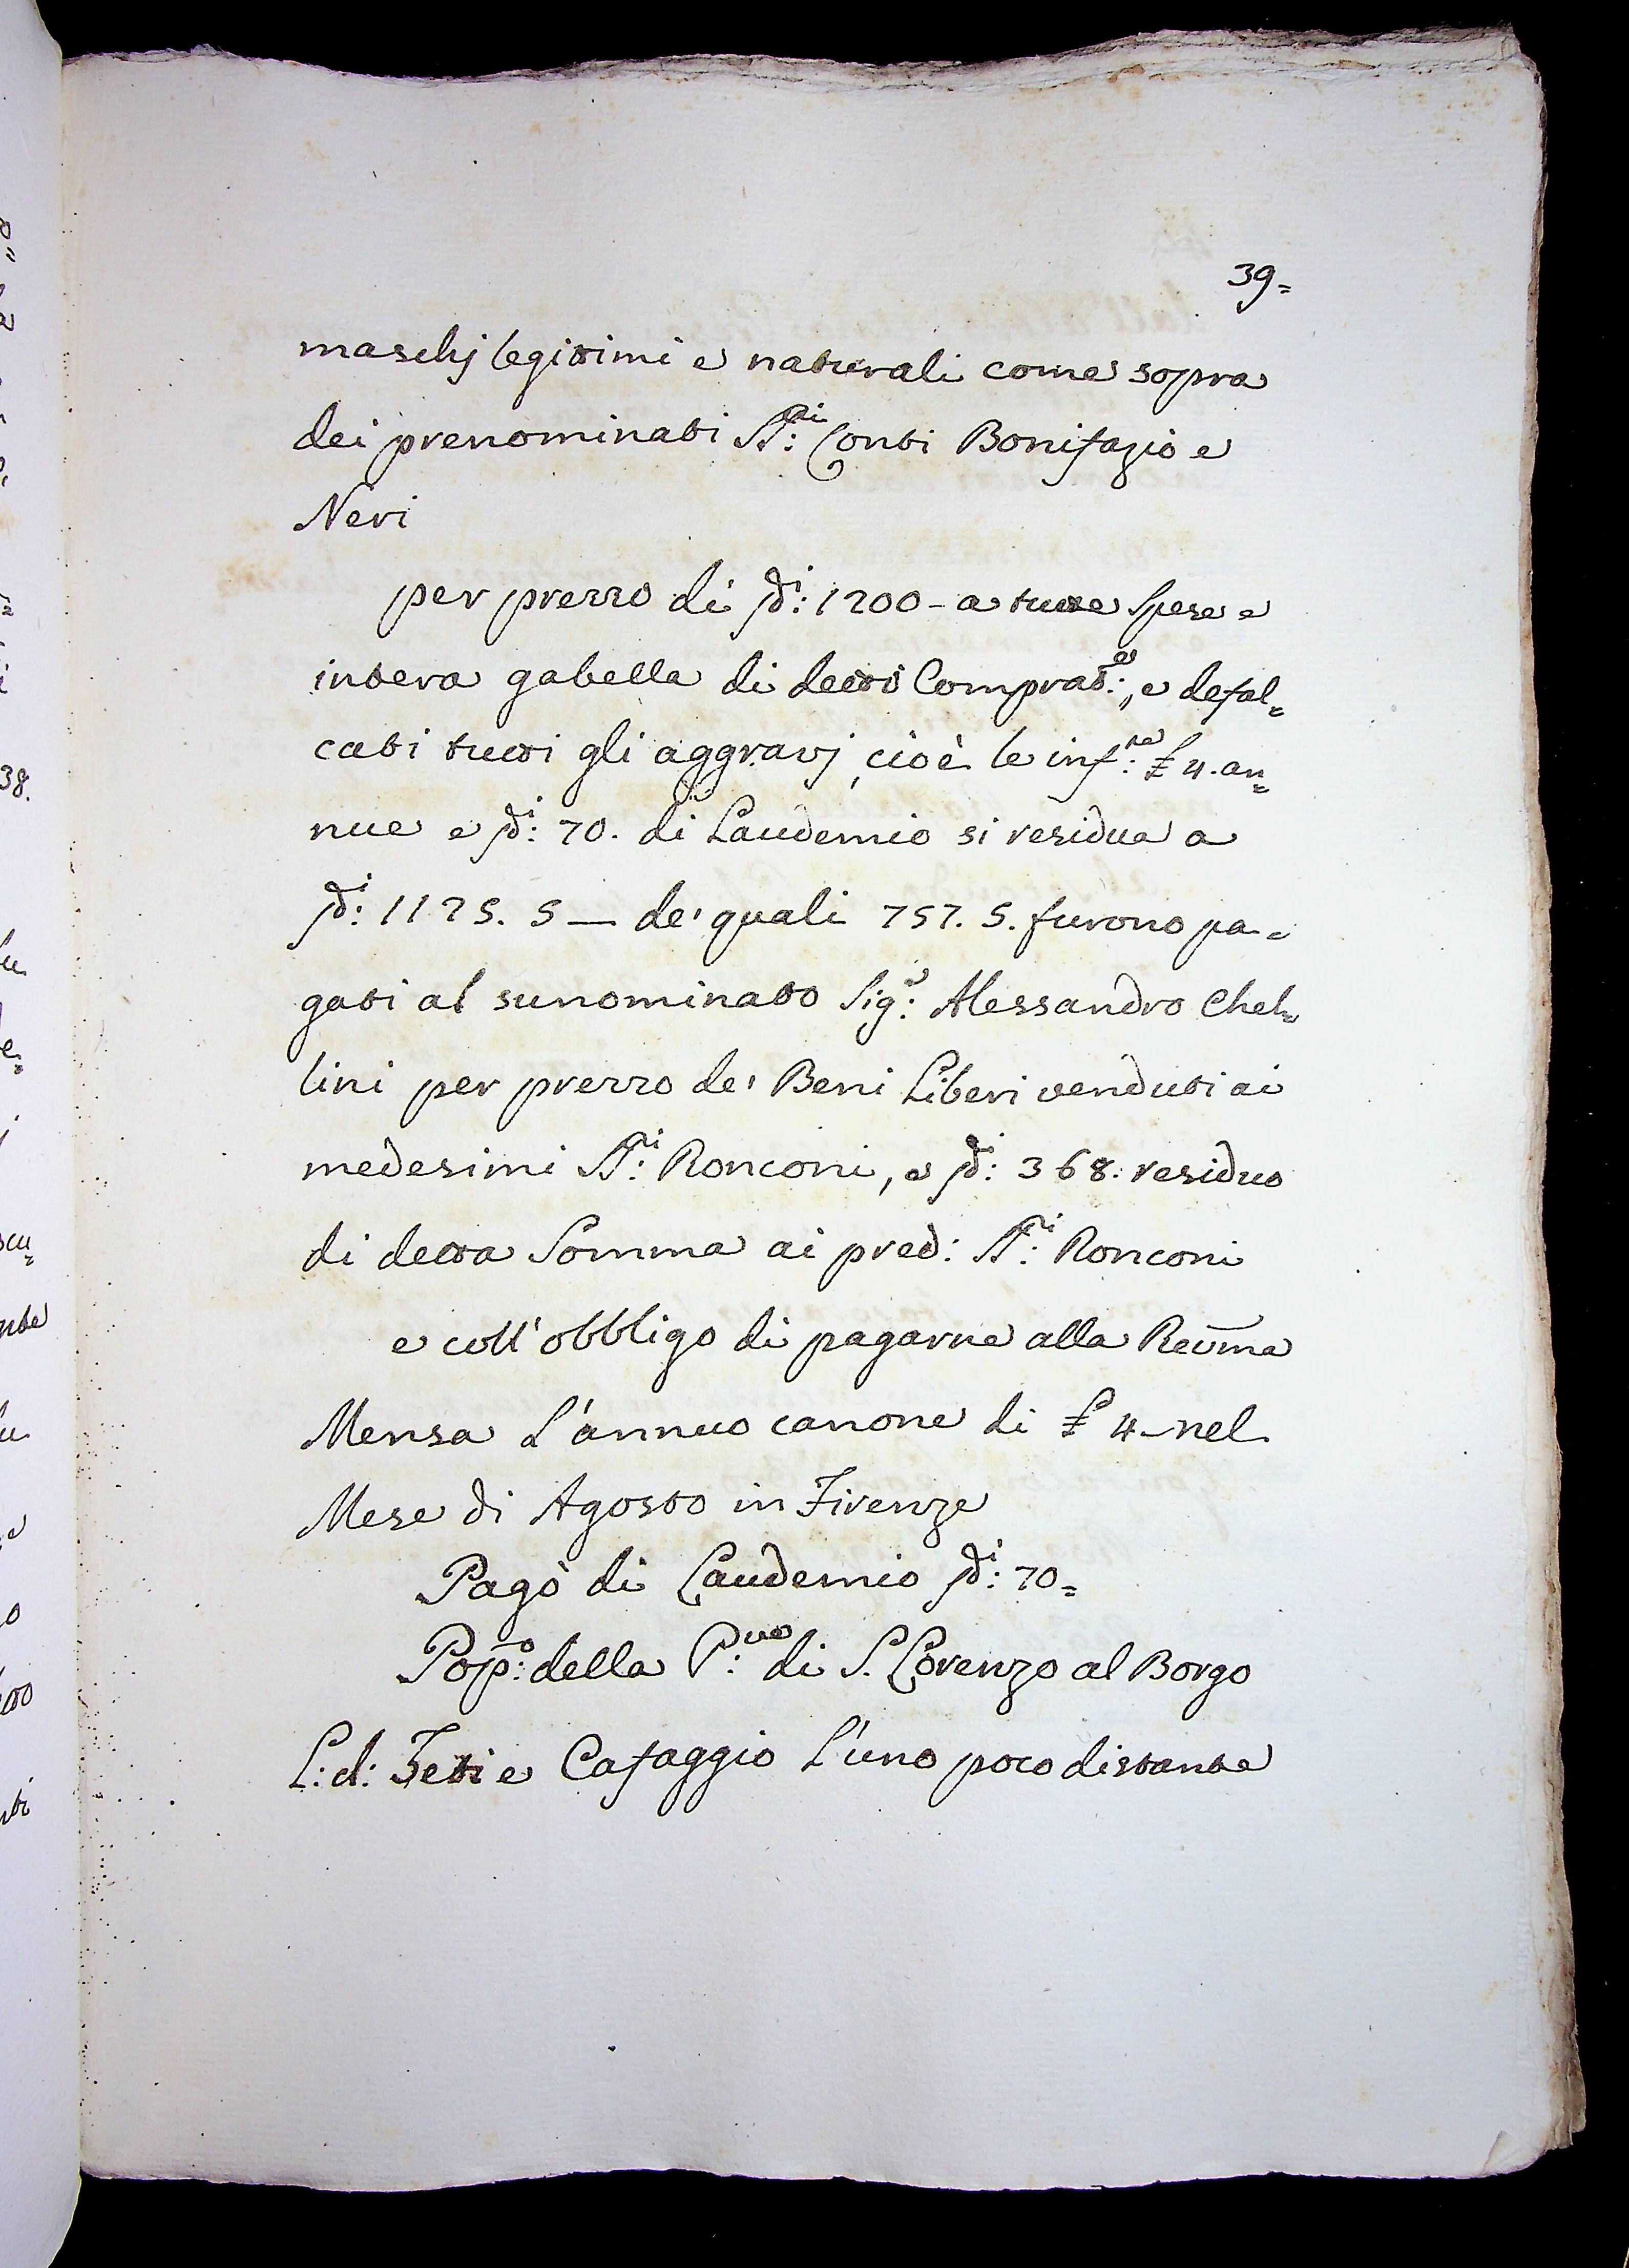 39=
maschj legittimi e naturali come sopra
dei prenominati SS:ri Conti Bonifazio e
Neri
per prezzo di s.di: 1200 - a tutte spese e
intera gabella di detti Comprat:e, e defal=
cati tutti gli aggravj, cioè le inf:te £ 4. an=
nue e s.di: 70. di Laudemio si residua a
s.di: 1125. 5 — de' quali 757. 5. furono pa=
gati al sunominato Sig:r Alessandro Chel=
lini per prezzo de' Beni Liberi venduti ai
medesimi SS:ri Ronconi, e s.di: 368. residuo
di detta Somma ai pred: SS:ri Ronconi
e coll'obbligo di pagarne alla Revma
Mensa L'annuo canone di £ 4 - nel
Mese di Agosto in Firenze
Pagò di Laudemio s.di: 70=
Pop:o della P:ve di S. Lorenzo al Borgo
L: d: Feti e Cafaggio L'uno poco distante